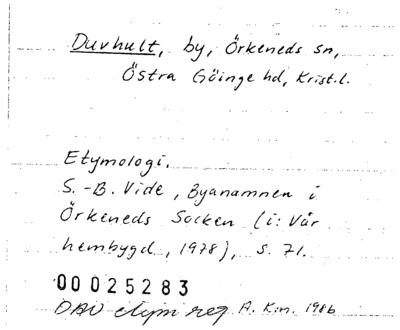 Duvhult, by, Örkeneds sn,
Östra Göinge hd, Krist.l.
Etymologi.
S.-B. Vide, Byanamnen i
Örkeneds Socken (i: Vår
hembygd, 1978), s. 71.
00025283
DAL etym reg A. Km. 1986